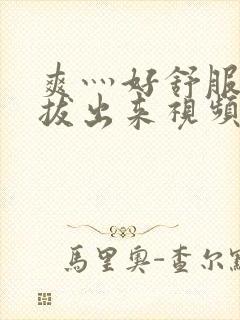 爽灬好舒服
拔出来視頻
馬里奧-查尔